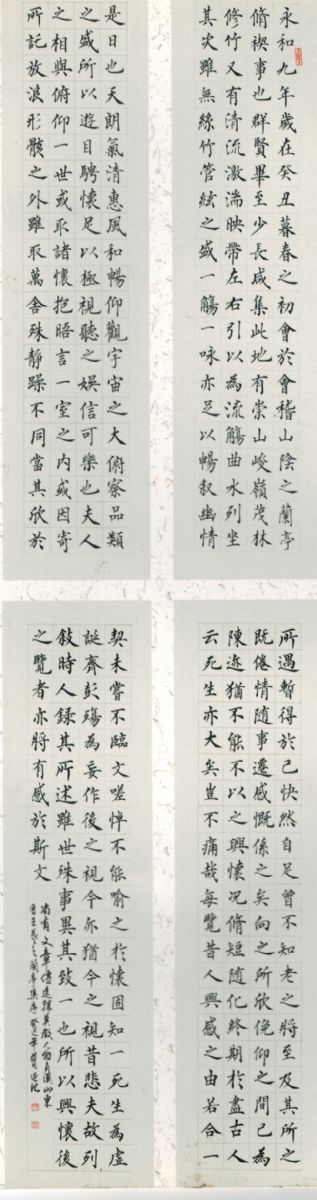 永和九年歲在癸丑暮春之初會於會稽山陰之蘭亭
脩禊事也群賢畢至少長咸集此地有崇山峻嶺茂林
修竹又有清流激湍映帶左右引以為流觴曲水列坐
其次雖無絲竹管絃之盛一觴一咏亦足以暢叙幽情
是日也天朗氣清惠風和暢仰觀宇宙之大俯察品類
之盛所以遊目騁懷足以極視聽之娛信可樂也夫人
之相與俯仰一世或取諸懷抱晤言一室之內或因寄
所託放浪形骸之外雖取萬舍殊靜躁不同當其欣於
所遇暫得於己快然自足曾不知老之將至及其所之
既倦情隨事遷感慨係之矣向之所欣俛仰之間已為
陳迹猶不能不以之興懷況脩短隨化終期於盡古人
云死生亦大矣豈不痛哉每覽昔人興感之由若合一
契未嘗不臨文嗟悼不能喻之於懷固知一死生為虛
誕齊彭殤為妄作後之視今亦猶今之視昔悲夫故列
敍時人錄其所述雖世殊事異其致一也所以興懷後
之覽者亦將有感於斯文
尚有文章傳
晉王羲之蘭亭集序癸巳年